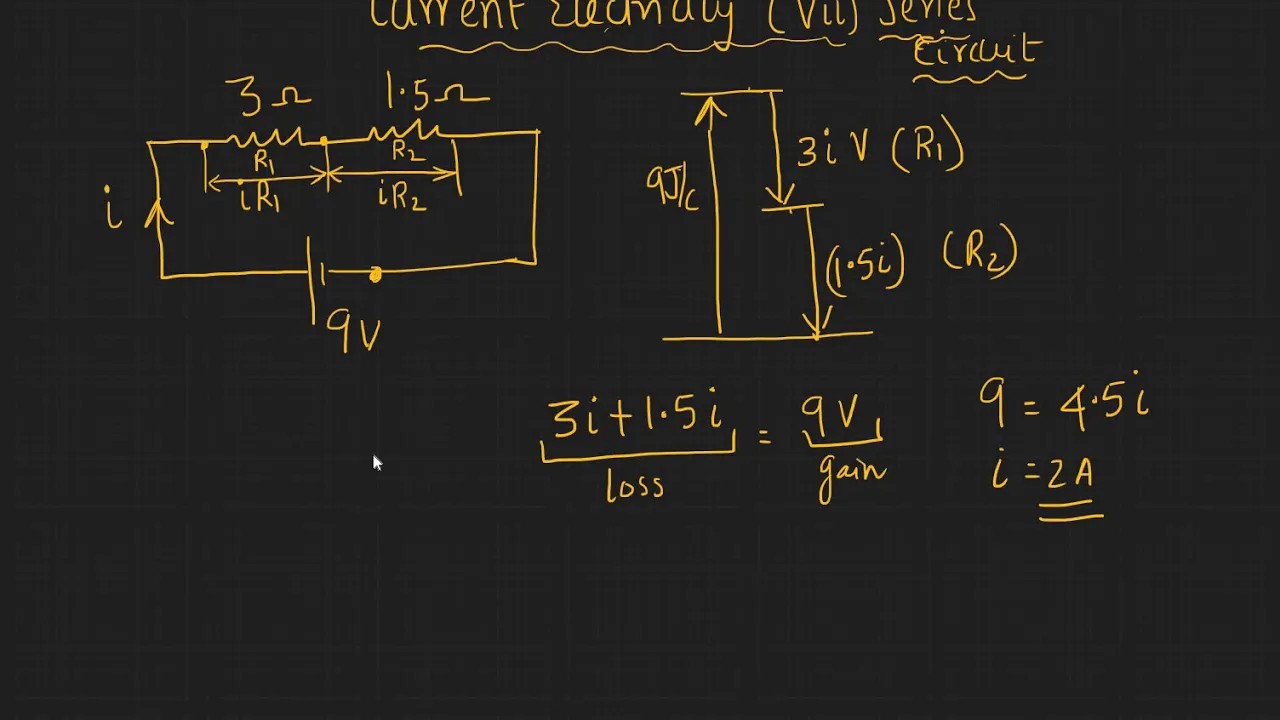 Current Electricity (VII) Series
Circuit
3Ω 1.5Ω
R₁ R₂
iR₁ iR₂
i
9V
9J/c
3i V (R₁)
(1.5i) (R₂)
3i+1.5i = 9V
loss gain
9 = 4.5i
i = 2A